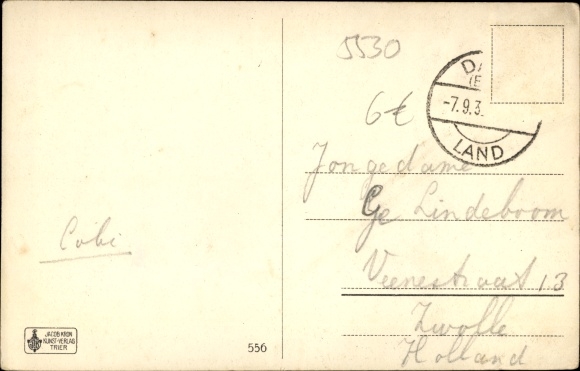 5530
6€
DA
(E
-7.9.3
LAND
Jongedame
Ge Lindeboom
Veenestraat 13
Zwolle
Holland
Cobi
JACOB KRON
KUNST-VERLAG
TRIER
556